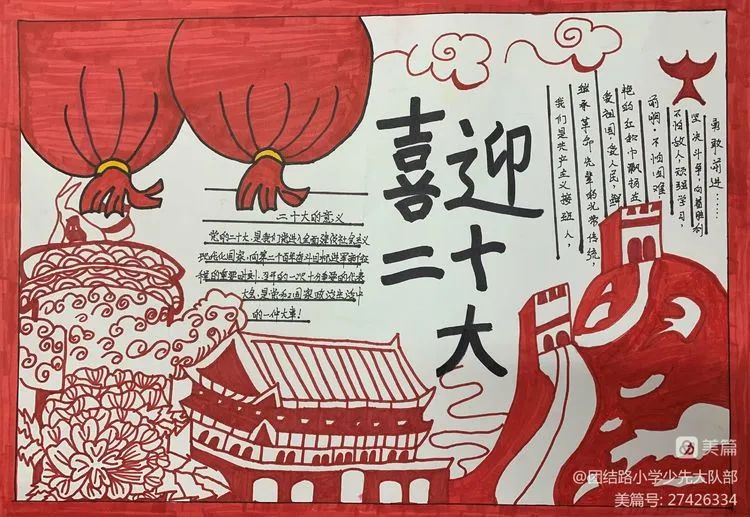 喜迎
二十大
二十大的意义
党的二十大,是我们党进入全面建设社会主义
现代化国家,向第二个百年奋斗目标进军新征
程的重要时刻,召开的一次十分重要的代表
大会,是党和国家政治生活中
的一件大事!
我们是共产主义接班人,
继承革命先辈的光荣传统,
爱祖国,爱人民,鲜
艳的红领巾飘扬在
前胸,不怕困难
不怕敌人,顽强学习,
坚决斗争,向着胜利
勇敢前进……
美篇
@团结路小学少先大队部
美篇号: 27426334